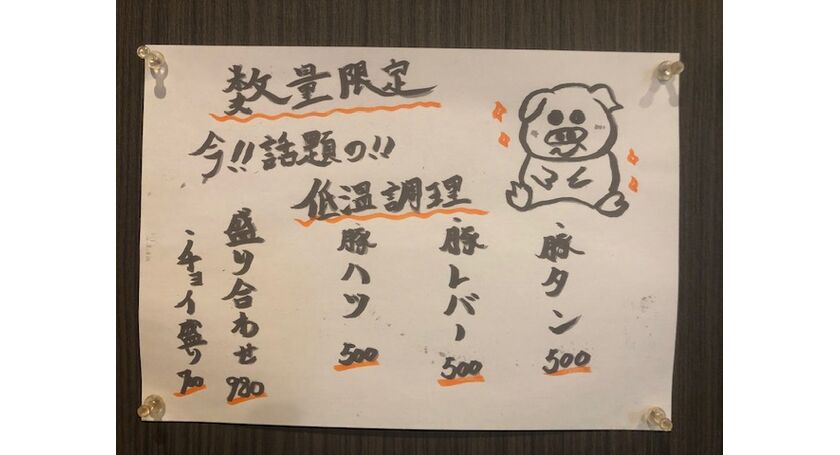 数量限定
今!!話題の!!
低温調理
・豚タン 500
・豚レバー 500
・豚ハツ 500
盛り合わせ 980
・チョイ盛り 710